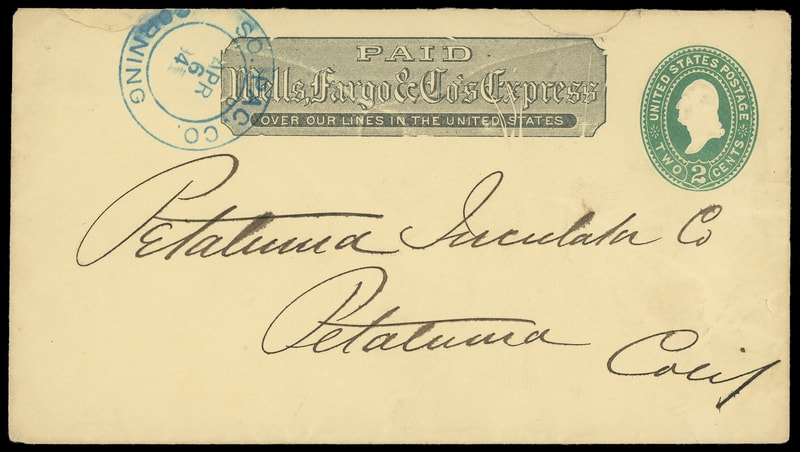 SO. PAC. CO.
APR
6
94
CORNING
PAID
Wells, Fargo & Co's Express
OVER OUR LINES IN THE UNITED STATES
UNITED STATES POSTAGE
TWO 2 CENTS
Petaluma Incubator Co
Petaluma
Cal